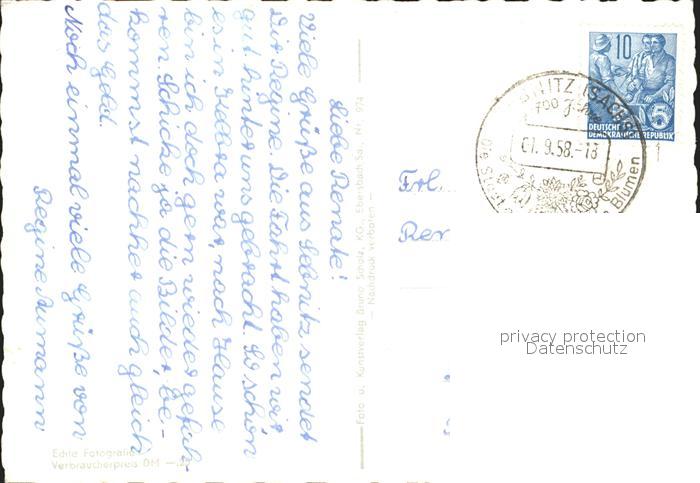 Liebe Renate!
Viele Grüße aus Sebnitz sendet
Dir Regine. Die Fahrt haben wir
gut hinter uns gebracht. So schön
es in Kelbra war, nach Hause
bin ich doch gern wieder gefah-
ren. Schicke ja die Bilder, be-
kommst nachher auch gleich
das Geld.
Noch einmal viele Grüße von
Regine Aumann
Echte Fotografie
Verbraucherpreis DM
Foto u. Kunstverlag Bruno Scholz, KG., Ebersbach Sa., Nr. 974
— Nachdruck verboten —
Frl.
Ren
10
DEUTSCHE
DEMOKRATISCHE REPUBLIK
BNITZ (SACHS
700 Jahre
01.9.58.-18
Blumen
privacy protection
Datenschutz